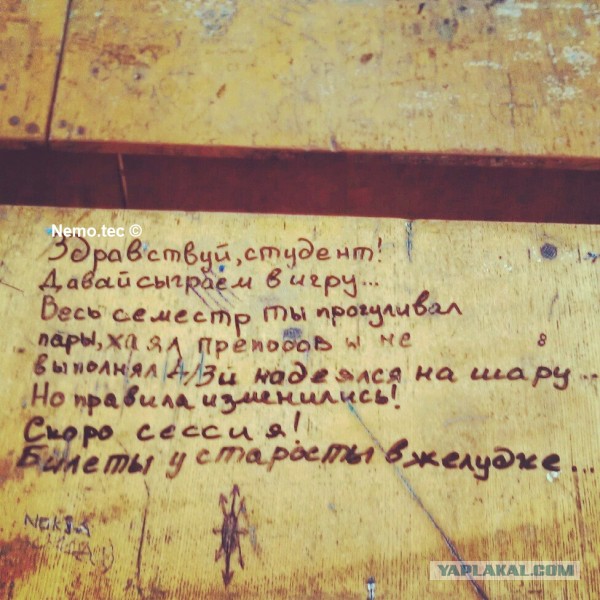 Nemo.tec ©
Здравствуй, студент!
Давай сыграем в игру...
Весь семестр ты прогуливал
пары, хаял преподов и не
выполнял д/з и надеялся на шару...
Но правила изменились!
Скоро сессия!
Билеты у старосты в желудке...
YAPLAKAL.COM